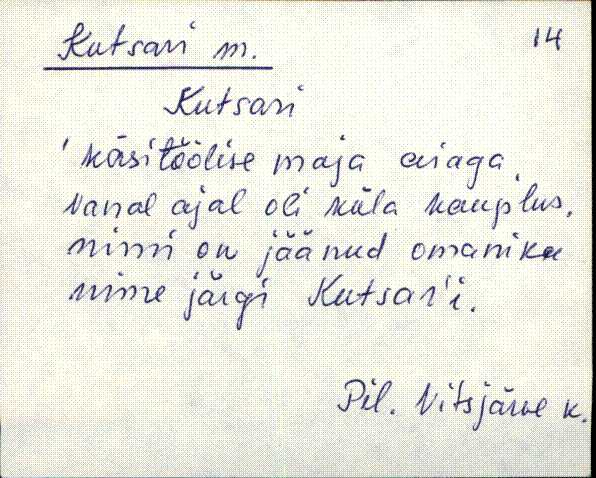 Kutsari m. 14
Kutsari
' käsitöölise maja aiaga,
vanal ajal oli küla kauplus.
nimi on jäänud omaniku
nime järgi Kutsar'i.
Pil. Vitsjärve k.